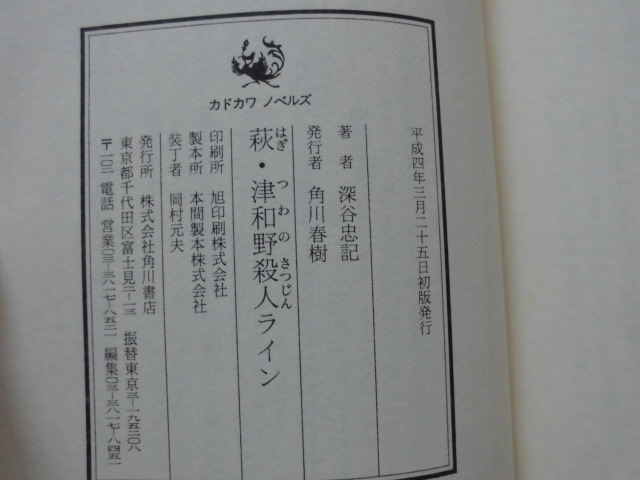 カドカワ ノベルズ
平成四年三月二十五日初版発行
著者 深谷忠記
発行者 角川春樹
萩・津和野殺人ライン
はぎ つわの さつじん
印刷所 旭印刷株式会社
製本所 本間製本株式会社
装丁者 岡村元夫
発行所 株式会社角川書店
東京都千代田区富士見二-一三 振替東京三-一九五二〇八
〒一〇二 電話 営業〇三-三八一七-八五二一 編集〇三-三八一七-八四五一